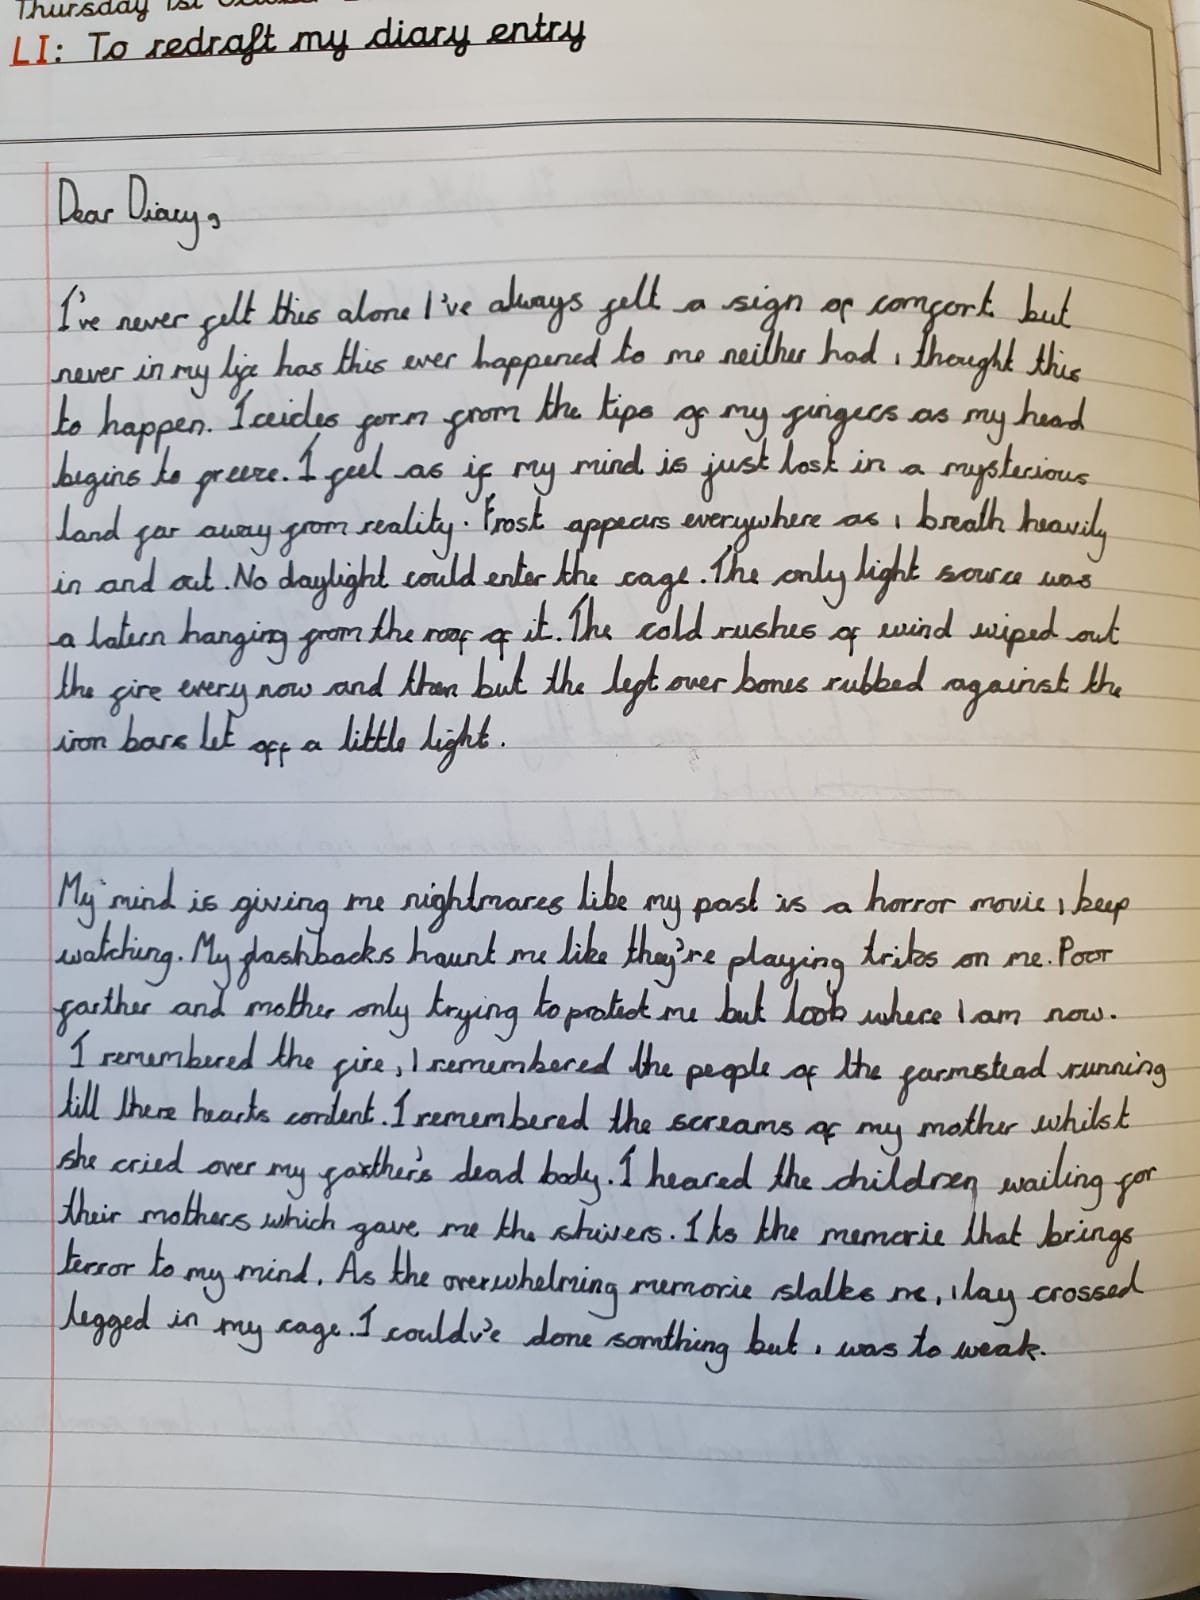 Thursday 1st
LI: To redraft my diary entry
Dear Diary,
I've never felt this alone I've always felt a sign of comfort but
never in my life has this ever happened to me neither had i thought this
to happen. Iceicles form from the tips of my fingers as my head
begins to freeze. I feel as if my mind is just lost in a mysterious
land far away from reality. Frost appears everywhere as i breath heavily
in and out. No daylight could enter the cage. The only light source was
a latern hanging from the roof of it. The cold rushes of wind wiped out
the fire every now and then but the left over bones rubbed against the
iron bars let off a little light.
My mind is giving me nightmares like my past is a horror movie i keep
watching. My flashbacks haunt me like they're playing triks on me. Poor
farther and mother only trying to protect me but look where I am now.
I remembered the fire, I remembered the people of the farmstead running
till there hearts content. I remembered the screams of my mother whilst
she cried over my farther's dead body. I heared the children wailing for
their mothers which gave me the shivers. Its the memorie that brings
terror to my mind. As the overwhelming memorie stalks me, i lay crossed
legged in my cage. I couldv'e done somthing but i was to weak.